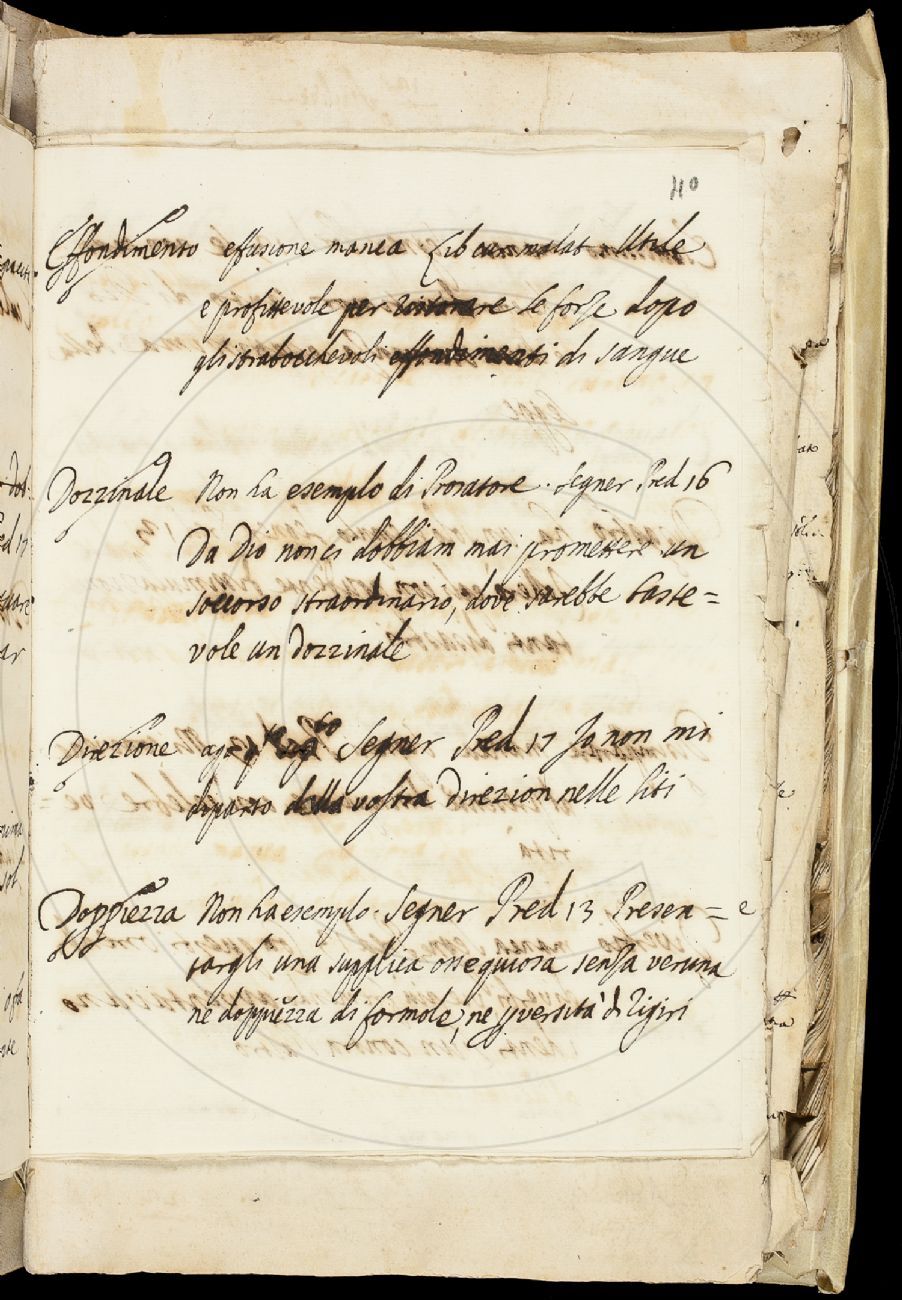 40
Effondimento effusione manca Lib cur malat Utile
e profittevole per ristorare le forze dopo
gli strabocchevoli effondimenti di sangue
Dozzinale Non ha esempio di Prosatore. Segner Pred 16
Da Dio non ci dobbiam mai promettere un
soccorso straordinario, dove sarebbe baste=
vole un dozzinale
Direzione Segner Pred 17 Io non mi
diparto dalla vostra direzion nelle liti
Doppiezza Non ha esempio. Segner Pred 13 Presen=
targli una supplica ossequiosa senza veruna
ne doppiezza di formole, ne di rigiri